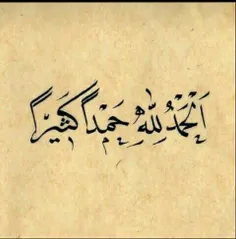 اَلْحَمْدُ لِلّٰهِ حَمْداً كَثِيْراً